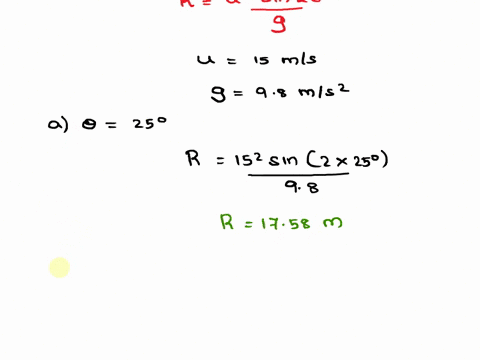 g
u = 15 m/s
g = 9.8 m/s²
a) θ = 25°
R = 15² sin (2 × 25°)
9.8
R = 17.58 m